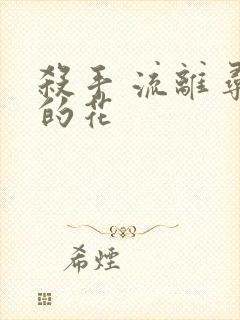 殺手 流離尋
的花
希煙